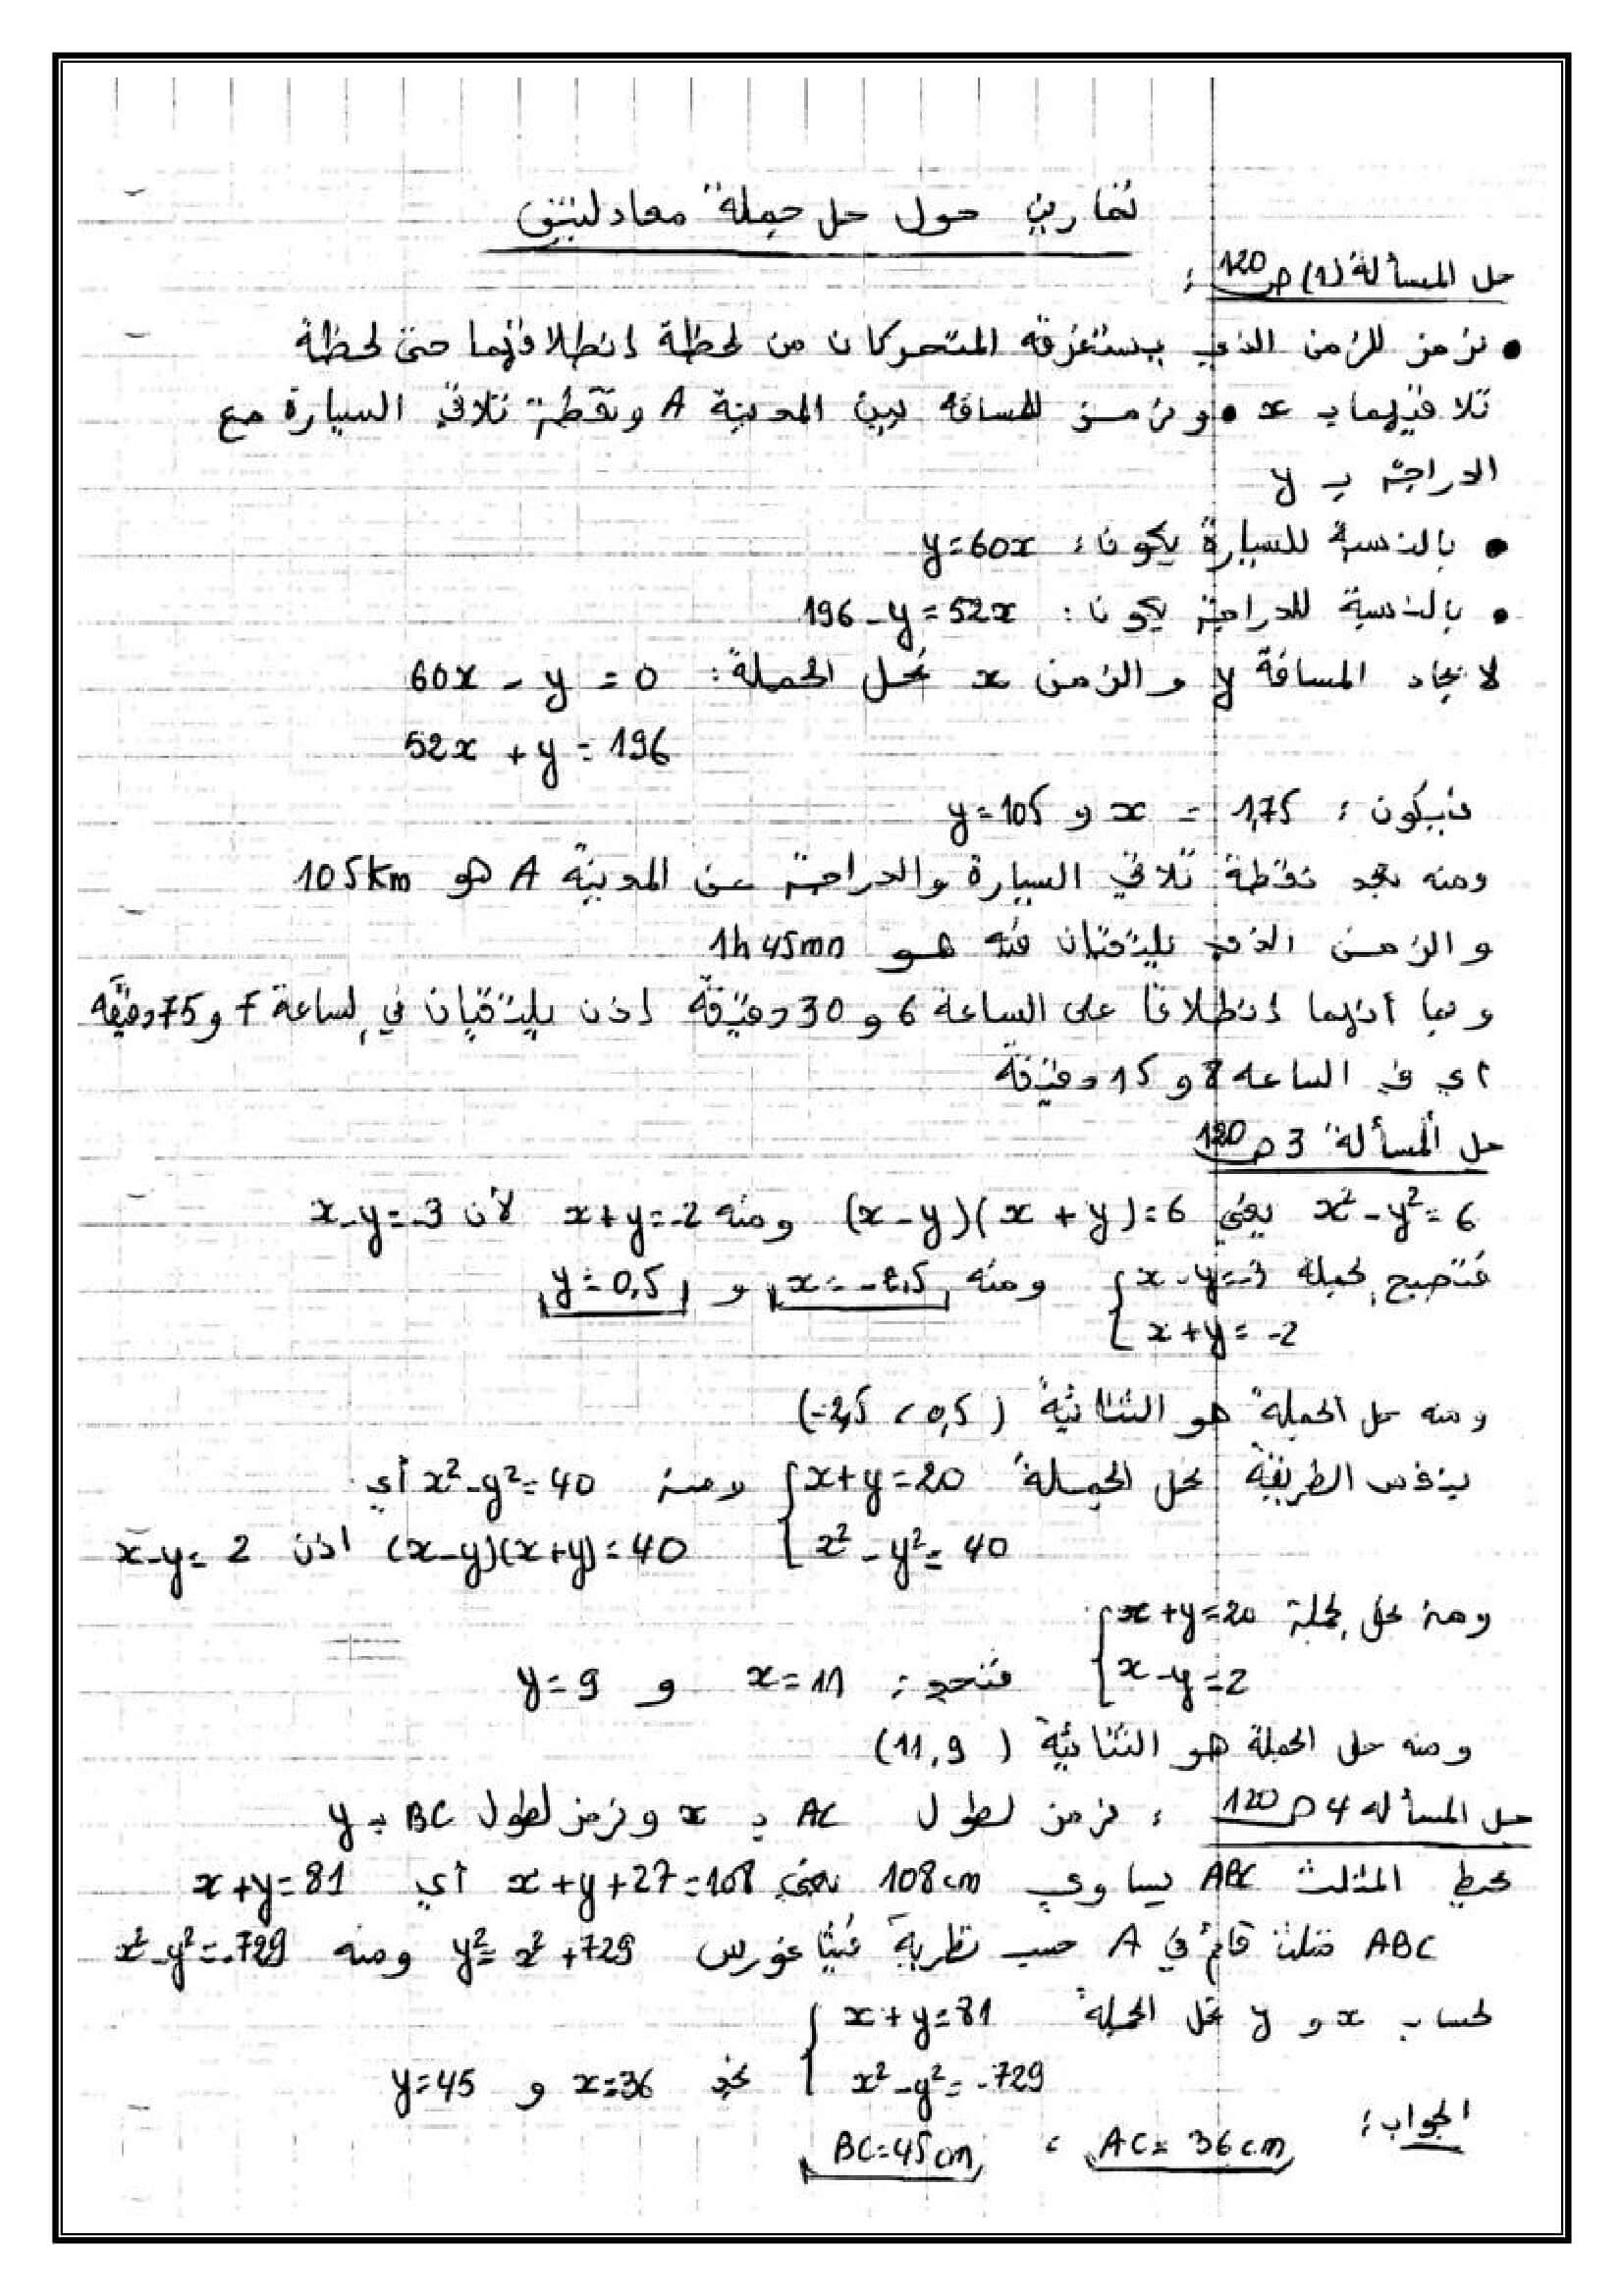 تمارين حول حل جملة معادلتين
حل المسألة (1) ص 120 :
• نرمز للزمن الذي يستغرقه المتحركان من لحظة إنطلاقهما حتى لحظة
تلاقيهما بـ x • ونرمز للمسافة بين المدينة A ونقطة تلاقي السيارة مع
الدراجة بـ y
• بالنسبة للسيارة يكون : y=60x
• بالنسبة للدراجة يكون : 196-y=52x
لايجاد المسافة y والزمن x نحل الجملة : 60x - y = 0
52x + y = 196
فيكون : 1,75 = x و y=105
ومنه نجد نقطة تلاقي السيارة والدراجة عن المدينة A هو 105km
والزمن الذي يلتقيان فيه هو 1h45mn
وبما أنهما إنطلاقا على الساعة 6 و 30 دقيقة إذن يلتقيان في الساعة 7 و 75 دقيقة
أي في الساعة 8 و 15 دقيقة
حل المسألة 3 ص 120
x²-y²=6 يعني (x-y)(x+y)=6 ومنه x+y=-2 لأن x-y=-3
فتصبح الجملة { x-y=-3 ومنه x=-2,5 و y=0,5
x+y=-2
ومنه حل الجملة هو الثنائية (-2,5 , 0,5)
بنفس الطريقة نحل الجملة { x+y=20 ومنه x²-y²=40 أي
x²-y²=40 (x-y)(x+y)=40 اذن x-y=2
ومنه نحل الجملة { x+y=20
x-y=2 فنجد : x=11 و y=9
ومنه حل الجملة هو الثنائية (11,9)
حل المسألة 4 ص 120 : نرمز لطول AC بـ x ونرمز لطول BC بـ y
محيط المثلث ABC يساوي 108cm يعني x+y+27=108 أي x+y=81
ABC مثلث قائم في A حسب نظرية فيثاغورس y²=x²+729 ومنه x²-y²=-729
لحساب x و y نحل الجملة { x+y=81
x²-y²=-729 نجد x=36 و y=45
الجواب : AC=36cm ، BC=45cm